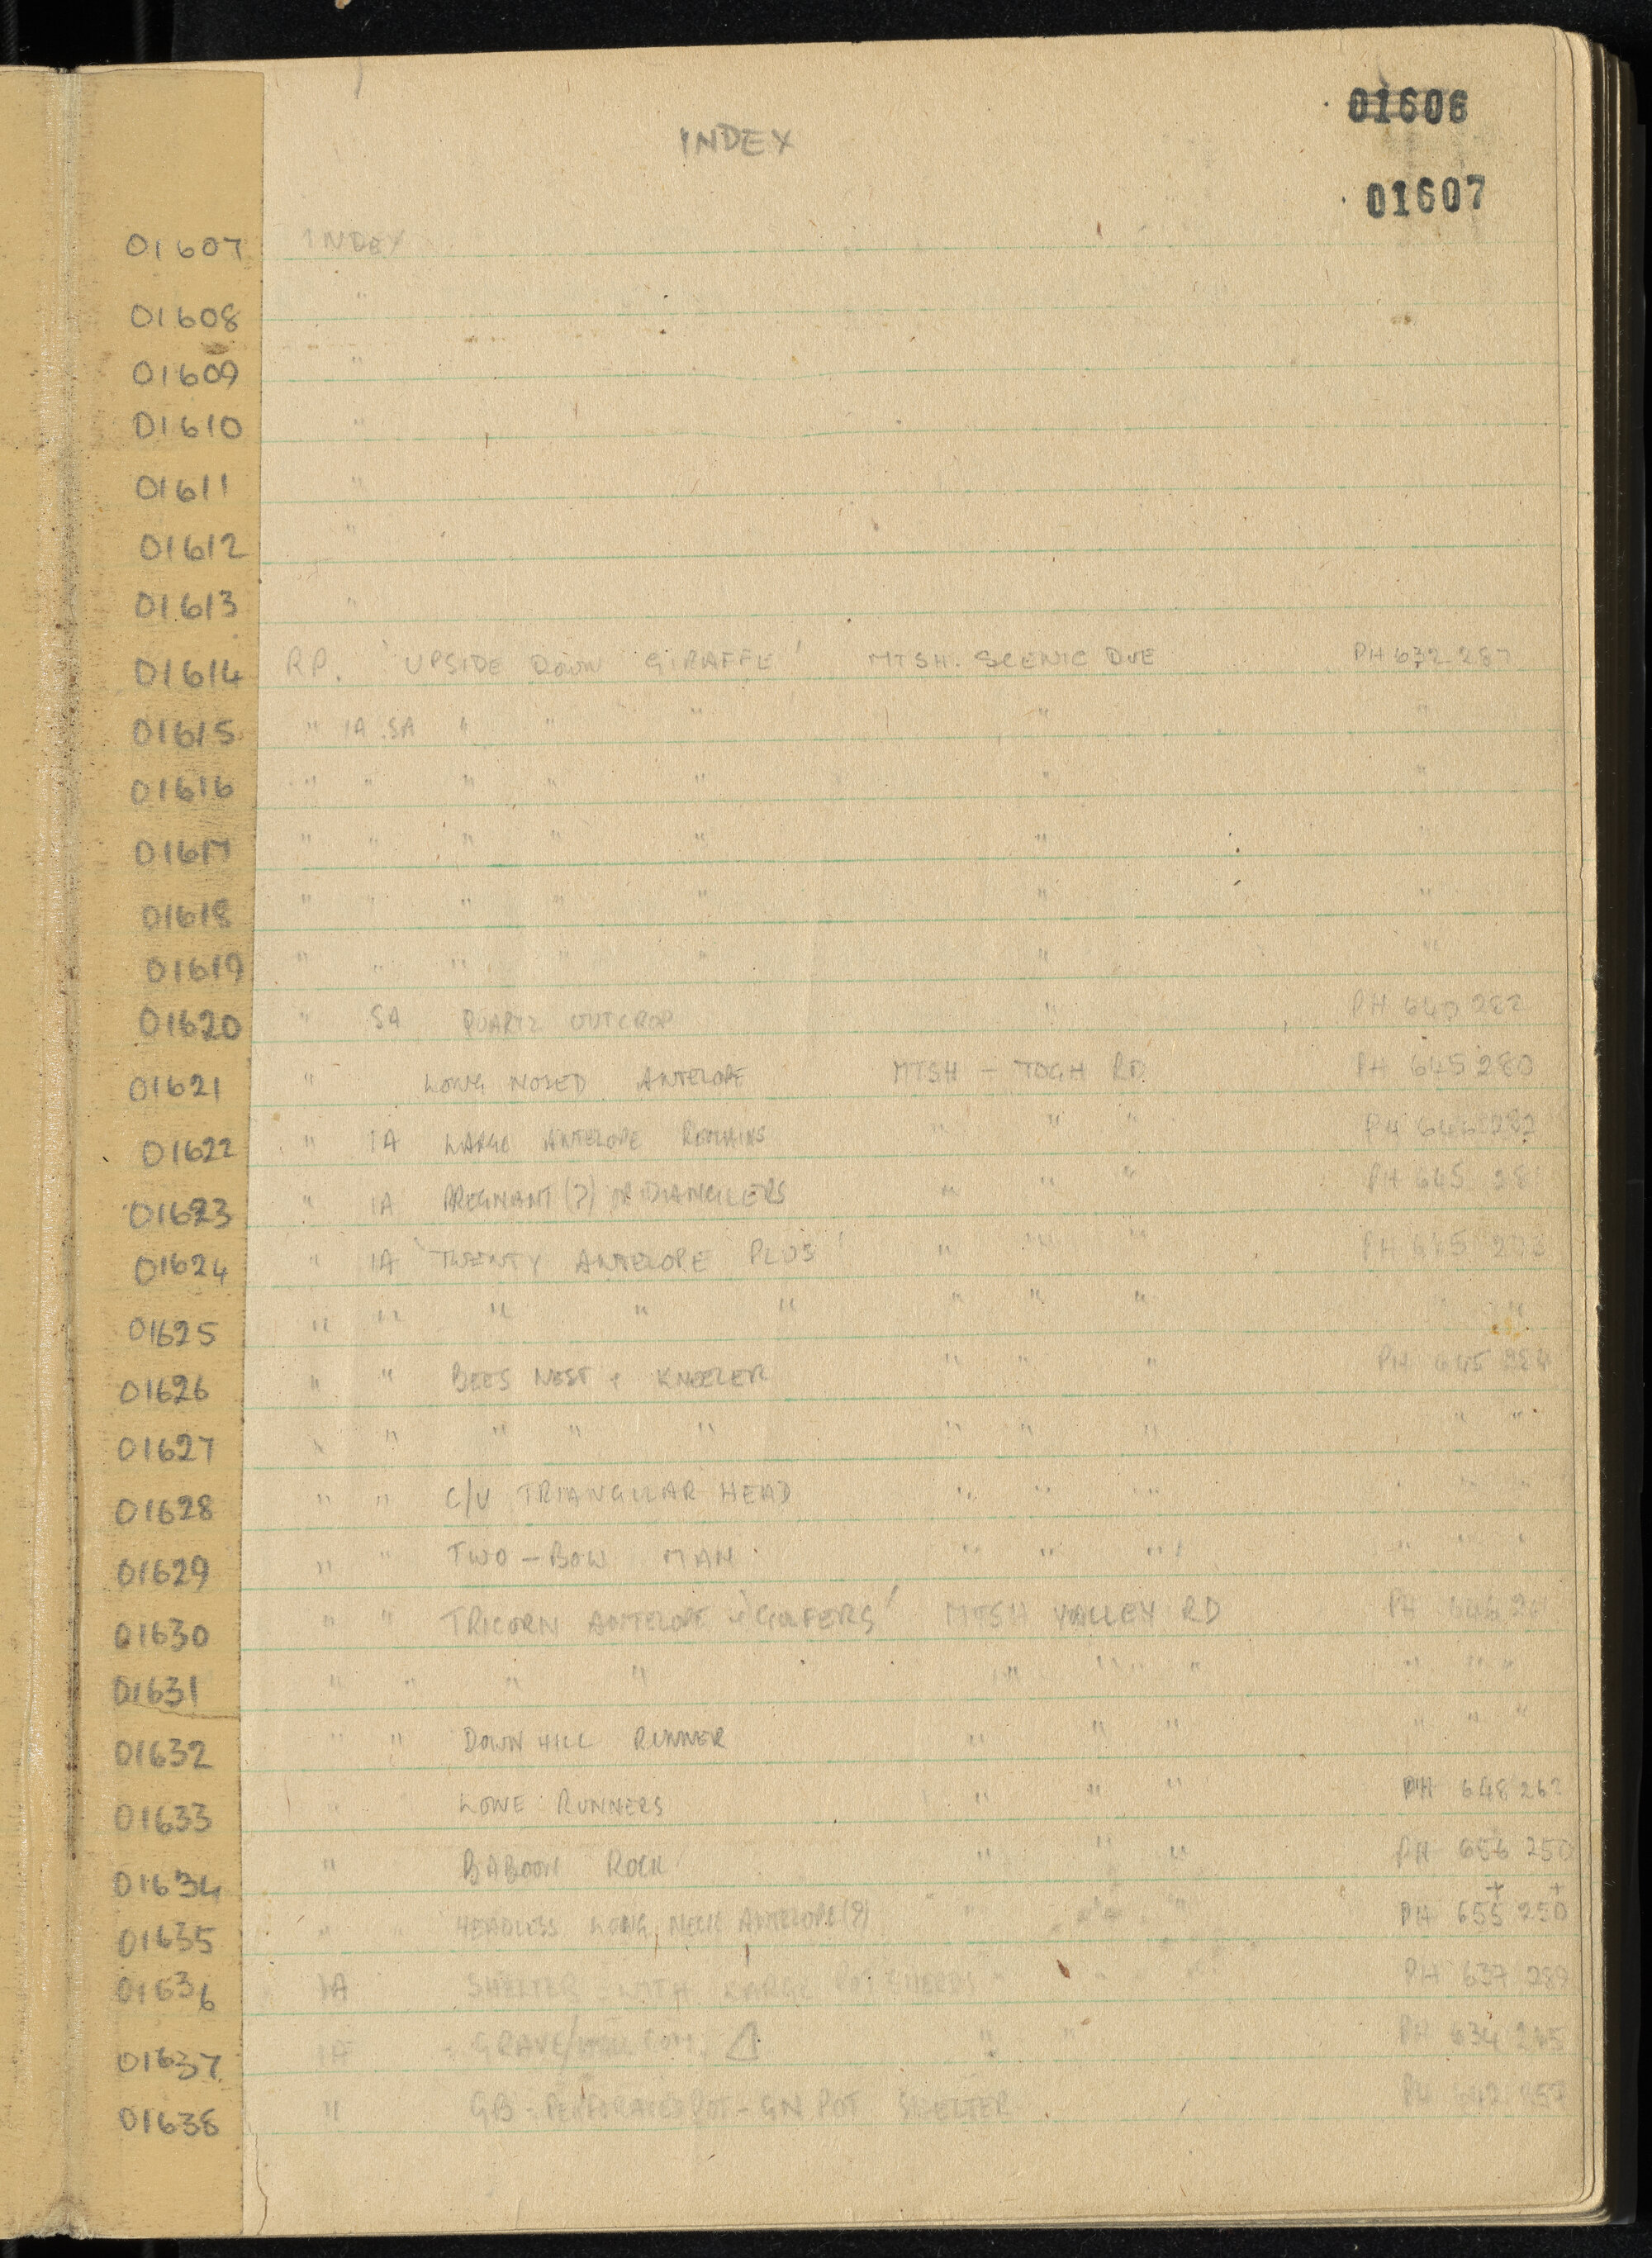 01606
INDEX
01607
01607 INDEX
01608 "
01609 "
01610 "
01611 "
01612 "
01613 "
01614 RP. 'UPSIDE DOWN GIRAFFE' MTSH. SCENIC DVE PH 632 287
01615 " IA SA " " " " "
01616 " " " " " " "
01617 " " " " " "
01618 " " " " " " "
01619 " " " " " " "
01620 " SA QUARTZ OUTCROP " PH 640 282
01621 " LONG NOSED ANTELOPE MTSH - TOGH RD. PH 645 280
01622 " IA LARGE ANTELOPE REMAINS " " " PH 646 282
01623 " IA PREGNANT (?) " " " PH 645 281
01624 " IA 'TWENTY ANTELOPE PLUS' " " " PH 645
01625 " " " " " " " " "
01626 " " BEES NEST + KNEELER " " " PH 645 284
01627 " " " " " " " " " "
01628 " " C/U TRIANGULAR HEAD " " " " " "
01629 " " TWO-BOW MAN " " " " " "
01630 " " TRICORN ANTELOPE + 'GOLFERS' MTSH VALLEY RD PH 646
01631 " " " " " " " " " "
01632 " " DOWNHILL RUNNER " " " " " "
01633 " LONE RUNNERS " " " PH 648 262
01634 " BABOON ROCK " " " PH 656 250
01635 " HEADLESS LONG NECK ANTELOPE (?) " " " PH 655+ 250+
01636 IA SHELTER WITH LARGE POTSHERDS " " " PH 637 289
01637 IA GRAVE/ " " PH 634 265
01638 " GB - PERFORATED POT - GN POT SHELTER PH 642 257